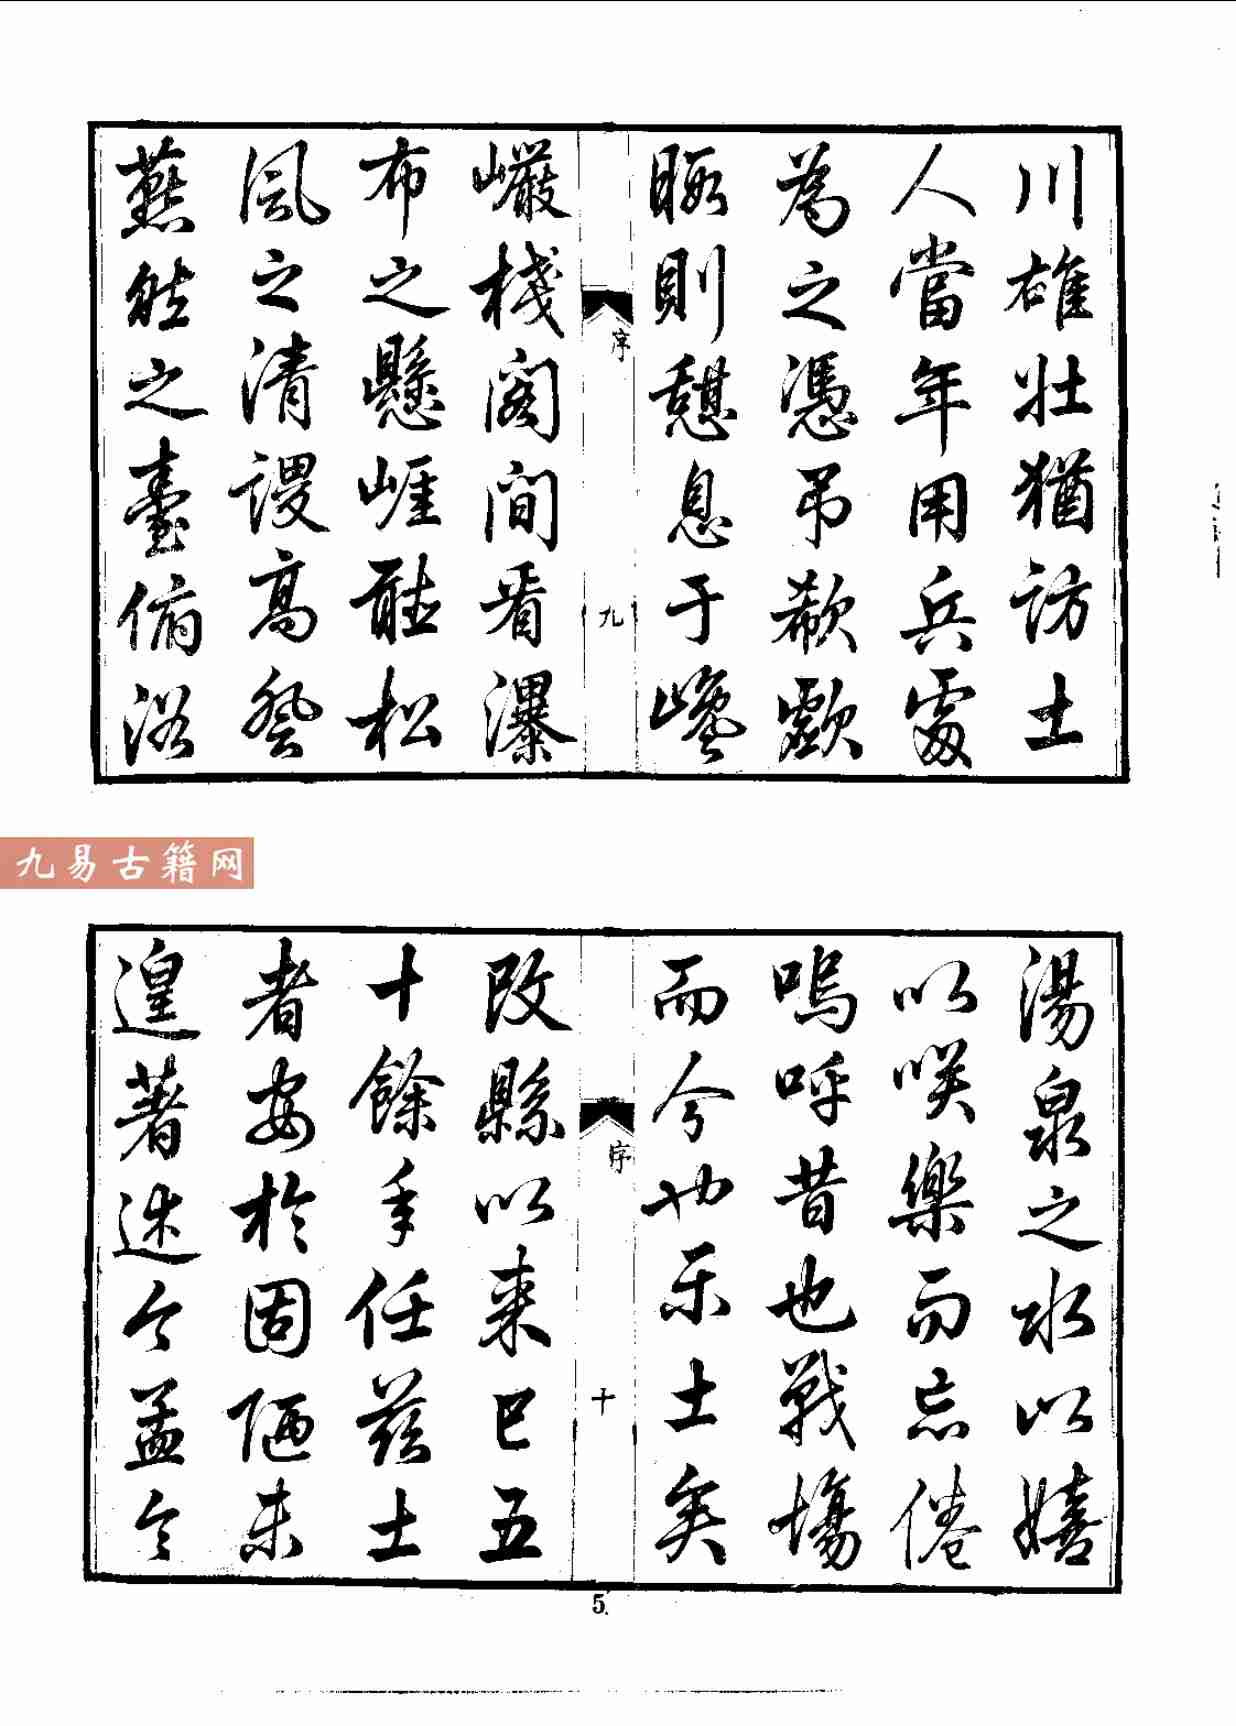 川雄壯猶訪土
人當年用兵處
為之憑吊欷歔
暇則憩息于巉
序
九
巖棧閣間看瀑
布之懸崖聽松
風之清謖高登
燕然之臺俯浴
九易古籍网
湯泉之水以嬉
以咲樂而忘倦
嗚呼昔也戰場
而今也樂土矣
序
十
改縣以来已五
十餘年任茲土
者安於固陋未
遑著述今孟令
5